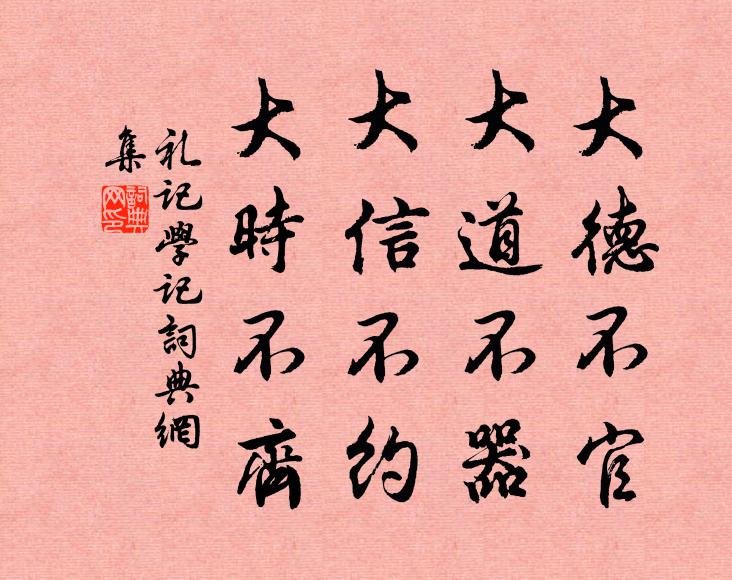 大德不官
大道不器
大信不約
大時不齊
礼記學記詞典網
集
詞典
网印